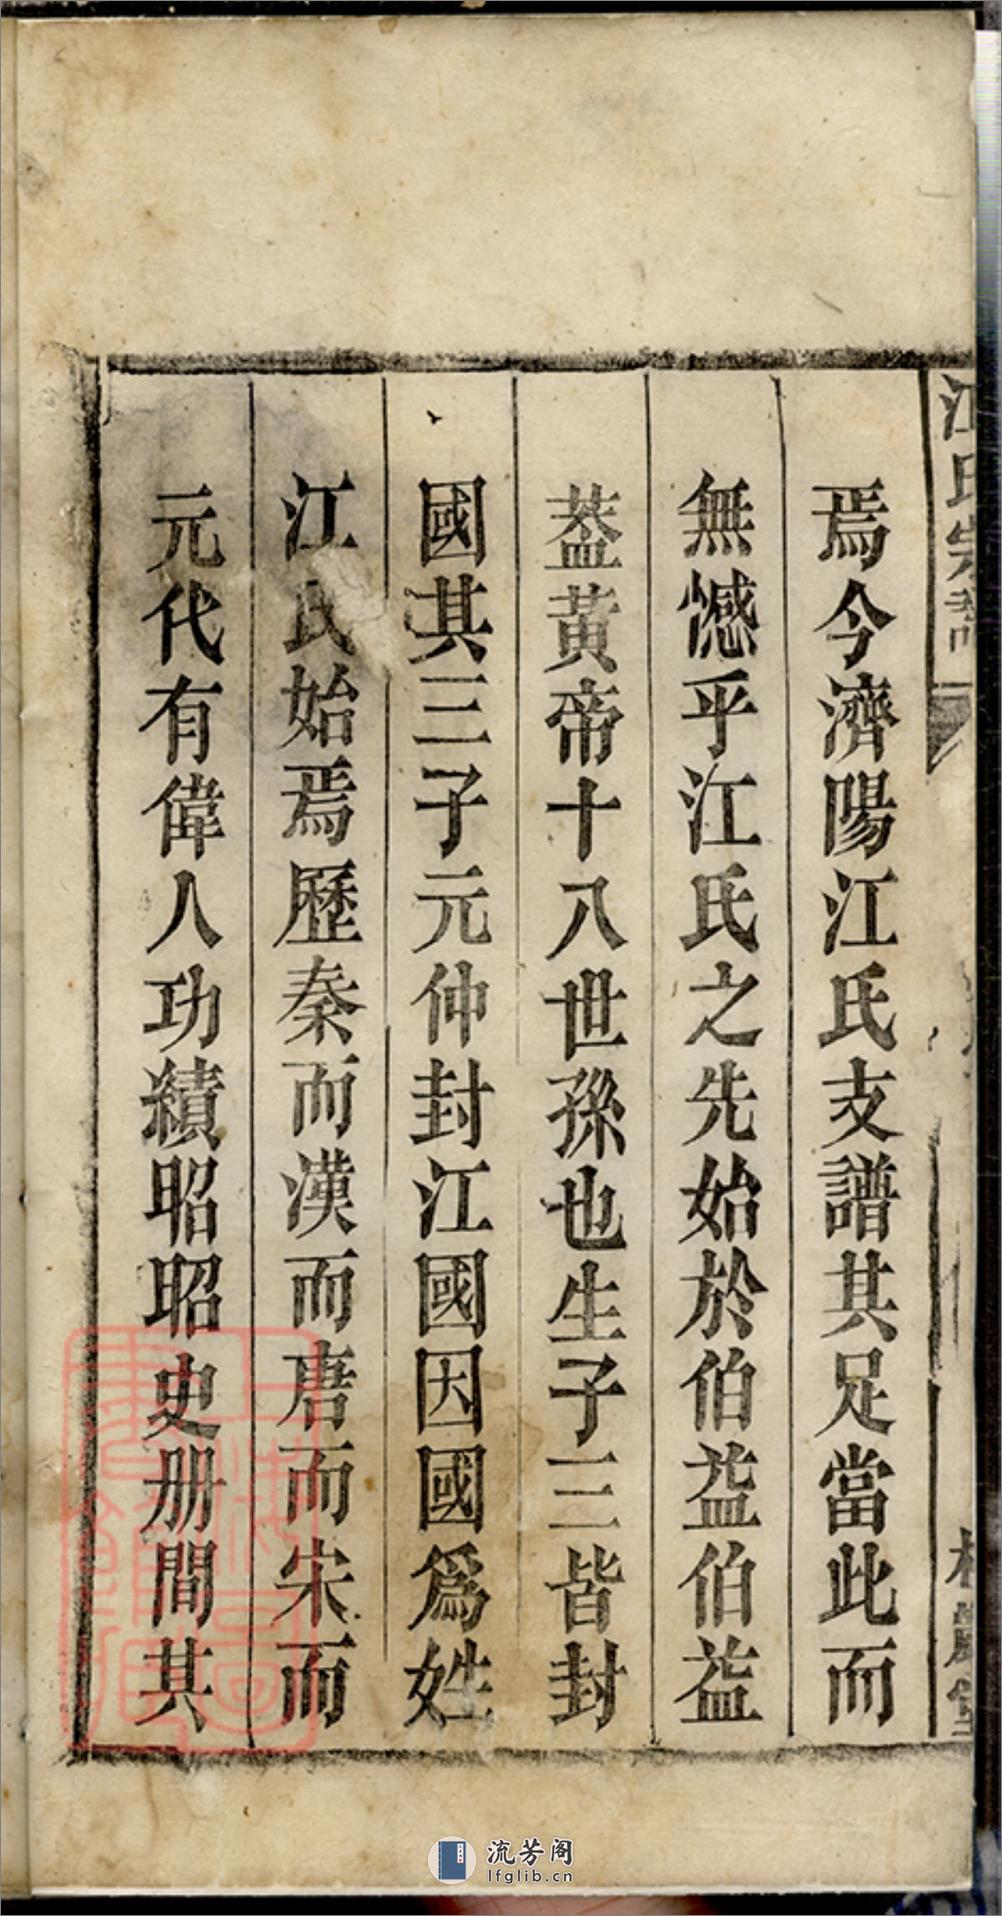 江氏宗譜
焉今濟陽江氏支譜其足當此而
無憾乎江氏之先始於伯益伯益
葢黃帝十八世孫也生子三皆封
國其三子元仲封江國因國爲姓
江氏始焉歷秦而漢而唐而宋而
元代有偉人功績昭昭史册間其
流芳阁
lfglib.cn